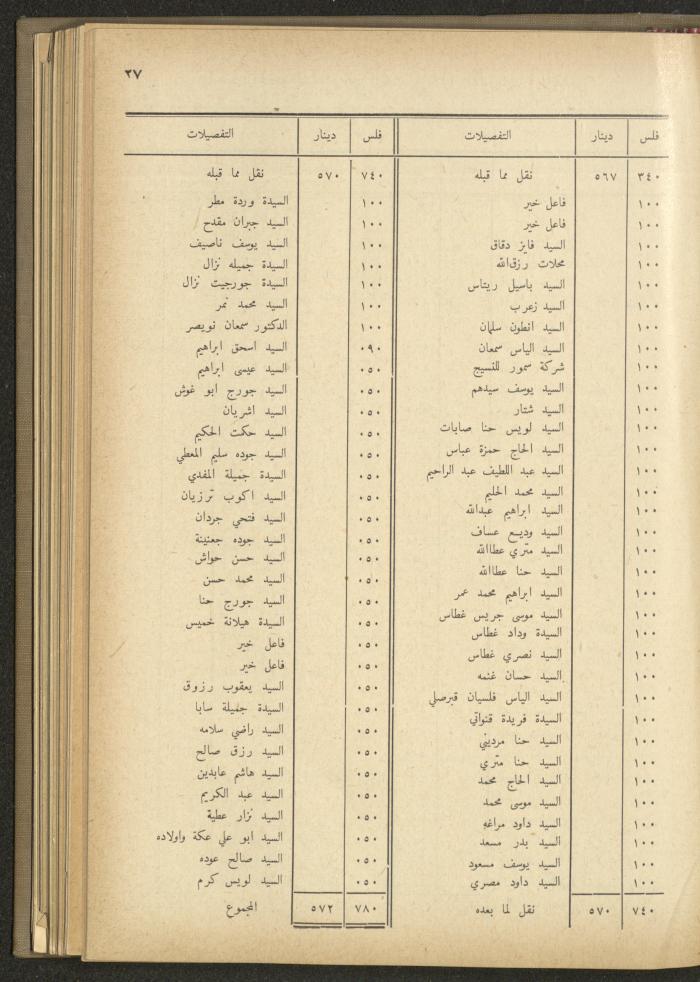 ٢٧
فلس دينار التفصيلات
٣٤٠ ٥٦٧ نقل مما قبله
١٠٠ فاعل خير
١٠٠ فاعل خير
١٠٠ السيد فايز دقاق
١٠٠ محلات رزق الله
١٠٠ السيد باسيل ريتاس
١٠٠ السيد زعرب
١٠٠ السيد انطون سلمان
١٠٠ السيد الياس سمعان
١٠٠ شركة سمور للنسيج
١٠٠ السيد يوسف سيدهم
١٠٠ السيد شتار
١٠٠ السيد لويس حنا صابات
١٠٠ السيد الحاج حمزة عباس
١٠٠ السيد عبد اللطيف عبد الراحيم
١٠٠ السيد محمد الحليم
١٠٠ السيد ابراهيم عبدالله
١٠٠ السيد وديع عساف
١٠٠ السيد متري عطاالله
١٠٠ السيد حنا عطاالله
١٠٠ السيد ابراهيم محمد عمر
١٠٠ السيد موسى جريس غطاس
١٠٠ السيدة وداد غطاس
١٠٠ السيد نصري غطاس
١٠٠ السيد حسان غنمه
١٠٠ السيد الياس فلسيان قبرصلي
١٠٠ السيدة فريدة قنواتي
١٠٠ السيد حنا مرديني
١٠٠ السيد حنا متري
١٠٠ السيد الحاج محمد
١٠٠ السيد موسى محمد
١٠٠ السيد داود مراغه
١٠٠ السيد بدر مسعد
١٠٠ السيد يوسف مسعود
١٠٠ السيد داود مصري
٧٤٠ ٥٧٠ نقل لما بعده
فلس دينار التفصيلات
٧٤٠ ٥٧٠ نقل مما قبله
١٠٠ السيدة وردة مطر
١٠٠ السيد جبران مقدح
١٠٠ السيد يوسف ناصيف
١٠٠ السيدة جميله نزال
١٠٠ السيدة جورجيت نزال
١٠٠ السيد محمد نمر
١٠٠ الدكتور سمعان نويصر
٠٩٠ السيد اسحق ابراهيم
٠٥٠ السيد عيسى ابراهيم
٠٥٠ السيد جورج ابو غوش
٠٥٠ السيد اشريان
٠٥٠ السيد حكمت الحكيم
٠٥٠ السيد جوده سليم المعطي
٠٥٠ السيدة جميلة المفدي
٠٥٠ السيد اكوب ترزيان
٠٥٠ السيد فتحي جردان
٠٥٠ السيد جوده جعنينة
٠٥٠ السيد حسن حواش
٠٥٠ السيد محمد حسن
٠٥٠ السيد جورج حنا
٠٥٠ السيدة هيلانة خميس
٠٥٠ فاعل خير
٠٥٠ فاعل خير
٠٥٠ السيد يعقوب رزوق
٠٥٠ السيدة جميلة سابا
٠٥٠ السيد راضي سلامه
٠٥٠ السيد رزق صالح
٠٥٠ السيد هاشم عابدين
٠٥٠ السيد عبد الكريم
٠٥٠ السيد نزار عطية
٠٥٠ السيد ابو علي عكة واولاده
٠٥٠ السيد صالح عوده
٠٥٠ السيد لويس كرم
٧٨٠ ٥٧٢ المجموع